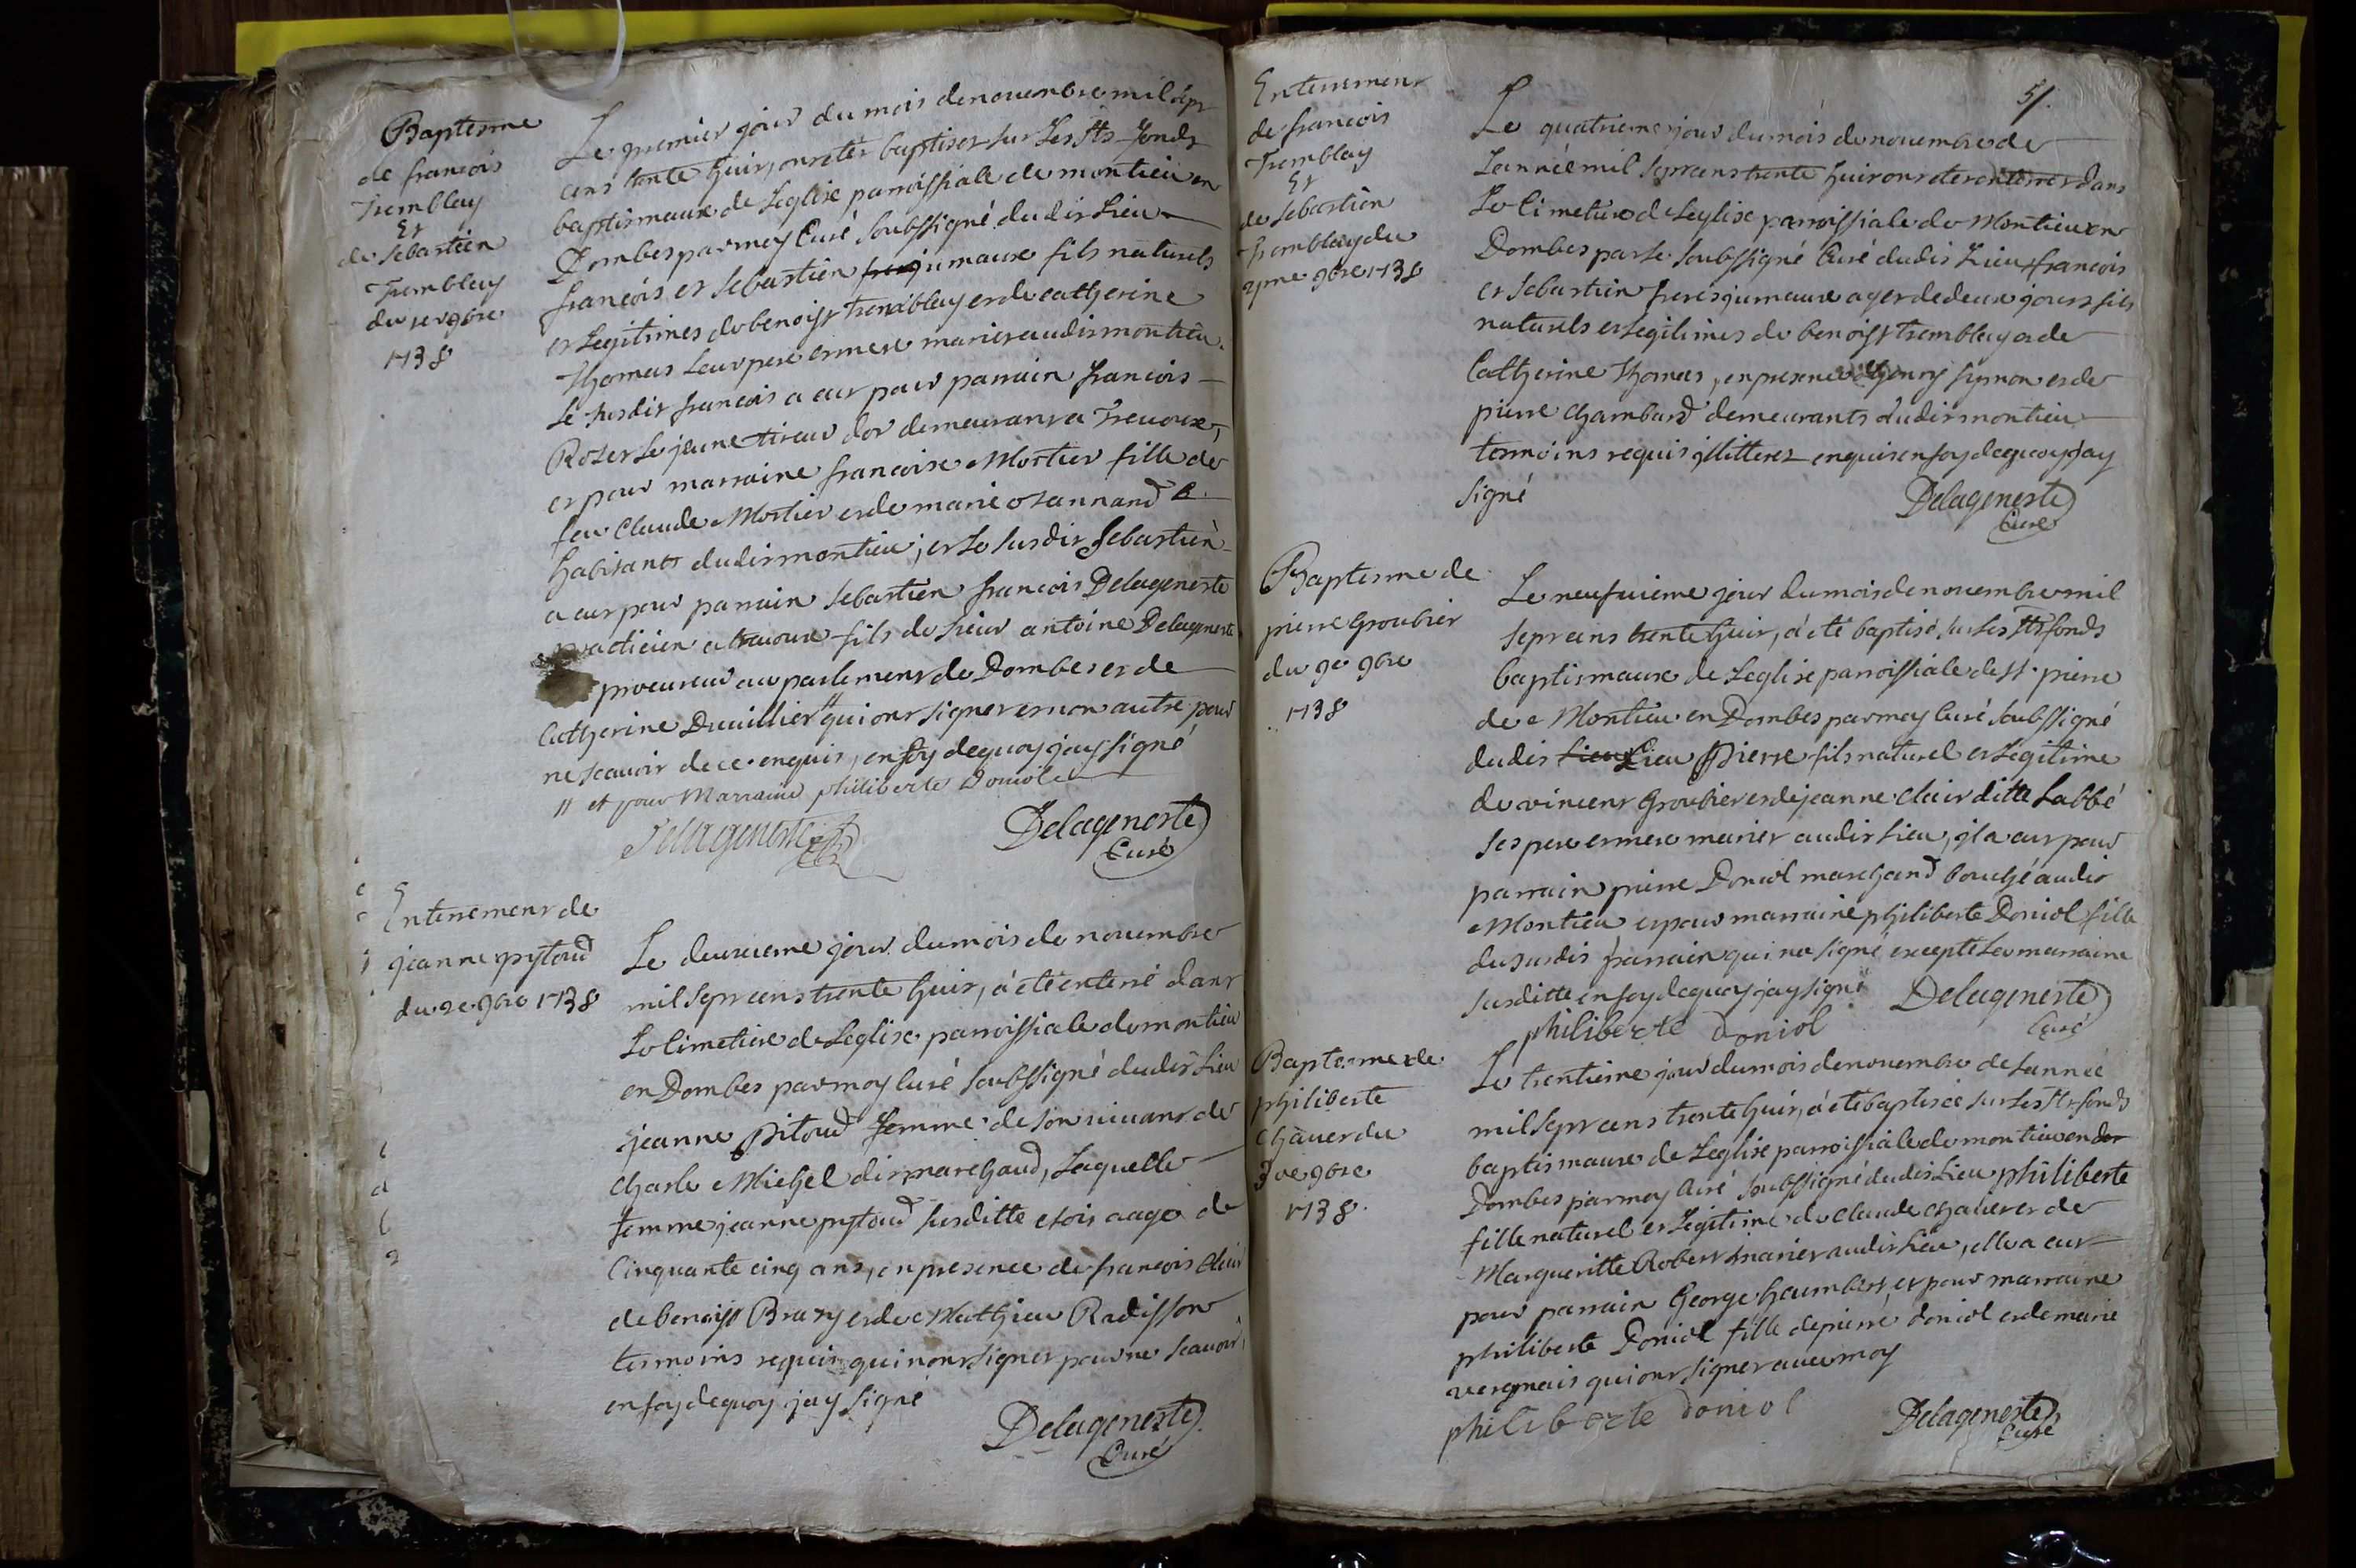 Baptesme
de francois
Tremblay
Et
de Sebastien
Tremblay
du 1er 9bre
1738
Le premier jour du mois de novembre mil sept
cens trente huit, ont etes baptises sur Les sts fonds
baptismaux de Leglise parroissiale de montieu en
Dombes par moy Curé soubssigné dudit Lieu
francois et Sebastien jumaux fils naturels
et Legitimes de benoist tremblay et de catherine
Thomas Leur pere et mere maries audit montieu.
Le susdit francois a eut pour parrain francois
Rozet Le jeune tireur d'or demeurant a Trevoux,
et pour marraine francoise Mortier fille de
feu Claude Mortier et de marie ozannand
habitants dudit montieu; et Le susdit Sebastien
a eut pour parrain Sebastien francois Delageneste
practicien a trevoux fils de sieur antoine Delageneste
procureur au parlement de Dombes et de
Catherine Duuillier // qui ont signer et non autre pour
ne scavoir de ce enquis, en foy dequoy j'ay signé
// et pour Marraine philiberte Doniole
Delageneste
Delageneste
Curé
Enterrement de
jeanne pytoud
du 2e 9bre 1738
Le deuxieme jour du mois de novembre
mil sept cens trente huit, a été enterré dans
Le Cimetiere de Leglise parroissiale de montieu
en Dombes par moy Curé soubssigné dudit Lieu
jeanne Pitoud femme de son vivant de
Charle Michel dit marchaud, Laquelle
femme jeanne pytoud susditte etoit aage de
Cinquante cinq ans, en presence de francois Clair
de benoist Brazy et de Mathieu Radisson
temoins requis qui n'ont signer pour ne scavoir,
en foy dequoy j'ay signé
Delageneste
Curé
51.
Enterrement
de francois
Tremblay
Et
de Sebastien
Tremblay du
4me 9bre 1738
Le quatrieme jour du mois de novembre de
Lannée mil sept cens trente huit ont etes enterres dans
Le Cimetiere de Leglise parroissiale de Montieu en
Dombes par Le soubssigné Curé dudit Lieu francois
et Sebastien freres jumaux ages de deux jours fils
naturels et Legitimes de benoist tremblay et de
Catherine Thomas, en presence d'henry symon et de
pierre Chambard demeurants audit montieu
temoins requis illitteres enquis en foy dequoy j'ay
signé
Delageneste
Curé
Baptesme de
pierre Groubier
du 9e 9bre
1738
Le neufuieme jour du mois de novembre mil
sept cens trente huit, a été baptisé sur Les sts fonds
baptismaux de Leglise parroissiale de st. pierre
de Montieu en Dombes par moy Curé soubssigné
dudit Lieu Pierre fils naturel et Legitime
de vincent Groubier et de jeanne Clair ditte Labbé
ses pere et mere marier audit Lieu, il a eut pour
parrain pierre Doniol marchand bouché audit
Montieu et pour marraine philiberte Doniol fille
du susdit parrain qui n'a signé excepté La marraine
susditte en foy dequoy j'ay signé
Delageneste
Curé
philiberte doniol
Baptesme de
philiberte
Chauer du
30e 9bre
1738.
Le trentieme jour du mois de novembre de Lannée
mil sept cens trente huit, a été baptisée sur Les sts fonds
baptismaux de Leglise parroissiale de montieu en
Dombes par moy Curé soubssigné dudit Lieu philiberte
fille naturel et Legitime de Claude et de
Margueritte Robert marier audit Lieu, elle a eut
pour parrain George haumbert, et pour marraine
philiberte Doniol fille de pierre doniol et de marie
vergnais qui ont signer avec moy
philiberte doniol
Delageneste
Curé